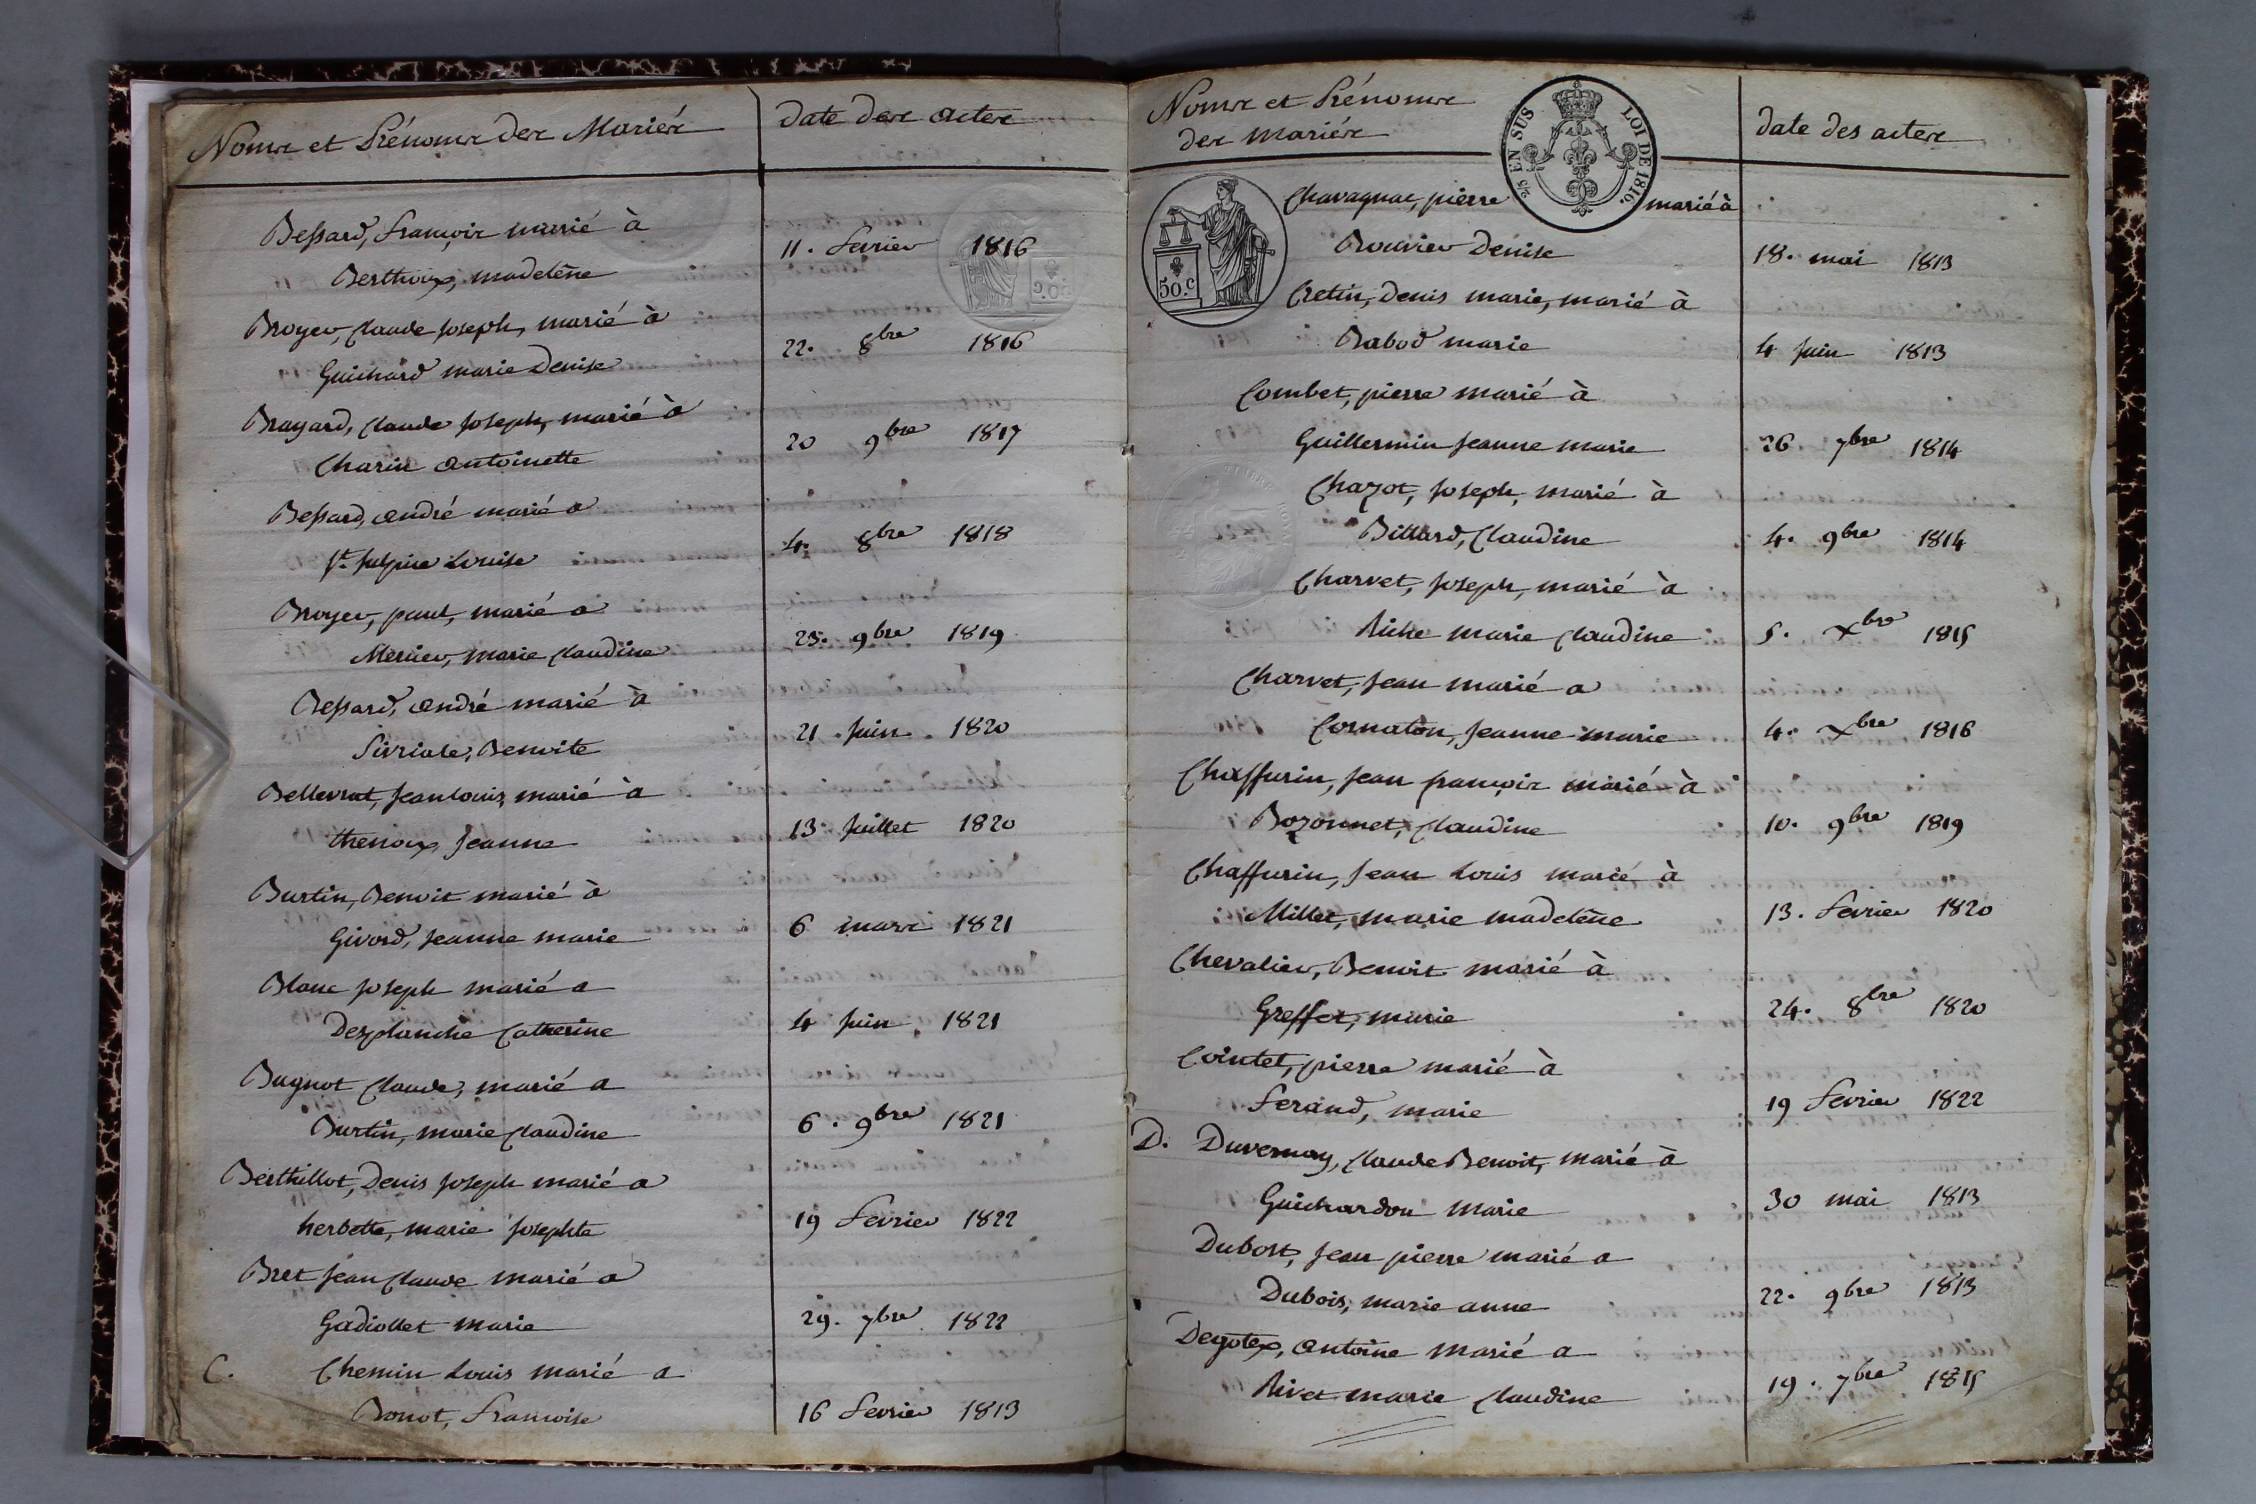 Noms et Prénoms des Mariés
date des actes
Bessard, François marié à
Berthoux, madelène
11. fevrier 1816
Broyer, Claude Joseph, marié à
Guichard marie Denise
22. 8bre 1816
Brayard, Claude Joseph, marié à
Charin antoinette
20 9bre 1817
Bessard, andré marié a
St. Sulpice Louise
4. 8bre 1818
Broyer, paul, marié a
Mercier, marie Claudine
23. 9bre 1819
Bessard, andré marié à
Benoite
21. Juin. 1820
Bellevrat, Jean Louis, marié à
thenoux Jeanne
13. Juillet 1820
Burtin, Benoit marié à
Givord, Jeanne marie
6 mars 1821
Blanc Joseph marié a
Desplanche Catherine
4 Juin 1821
Bugnot Claude, marié a
Burtin, marie Claudine
6. 9bre 1821
Berthillot, Denis Joseph marié a
herbette, marie Josephte
19 fevrier 1822
Bret Jean Claude marié a
Gadiollet marie
29. 7bre 1822
C. Chemin Louis marié a
Bonot, Francoise
16 fevrier 1813
Noms et Prénoms
des mariés
date des actes
2/5 EN SUS LOI DE 1816.
50.c
Chavagnac, pierre marié à
Bouvier Denise
18. mai 1813
Cretin, Denis marie, marié à
Rabod marie
4 Juin 1813
Combet, pierre marié à
Guillermin Jeanne marie
26 7bre 1814
Chazot, Joseph, marié à
Billard, Claudine
4. 9bre 1814
Charvet, Joseph, marié à
Riche marie Claudine
5. Xbre 1815
Charvet, Jean marié a
Cornaton, Jeanne marie
4. Xbre 1816
Chaffurin, Jean françois marié à
Bozonnet, Claudine
10. 9bre 1819
Chaffurin, Jean Louis marié à
Millet, marie madelène
13. fevrier 1820
Chevalier, Benoit marié à
Greffet, marie
24. 8bre 1820
Cointet, pierre marié à
Ferand, marie
19 fevrier 1822
D. Duvernay, Claude Benoit, marié à
Guichardon marie
30 mai 1813
Dubost, Jean pierre marié a
Dubois, marie anne
22. 9bre 1813
Degotex, antoine marié a
Rivet marie Claudine
19. 7bre 1815